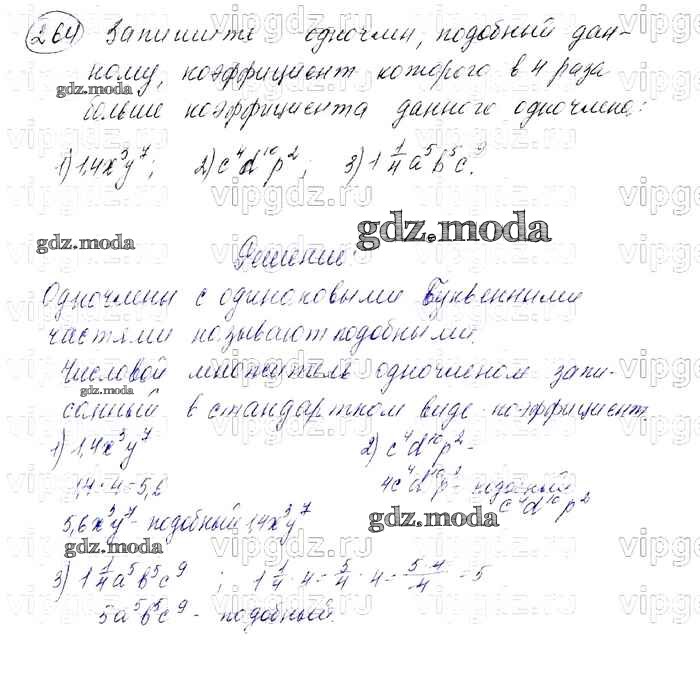 264 Запишите одночлен, подобный дан-
ному, коэффициент которого в 4 раза
gdz.moda
больше коэффициента данного одночлена:
1) 1,4x³y⁷; 2) c⁴d¹⁰p²; 3) 1 1/4 a⁵b⁵c⁹.
gdz.moda
gdz.moda
Решение:
Одночлены с одинаковыми буквенными
частями называют подобными.
Числовой множитель одночленом запи-
gdz.moda
санный в стандартном виде - коэффициент.
1) 1,4x³y⁷
1,4·4=5,6
5,6x³y⁷ - подобный 1,4x³y⁷
2) c⁴d¹⁰p² -
4c⁴d¹⁰p² - подобный
c⁴d¹⁰p²
gdz.moda
gdz.moda
3) 1 1/4 a⁵b⁵c⁹ ; 1 1/4 · 4 = 5/4 · 4 = 5·4/4 = 5
5a⁵b⁵c⁹ - подобный.
vipgdz.ru